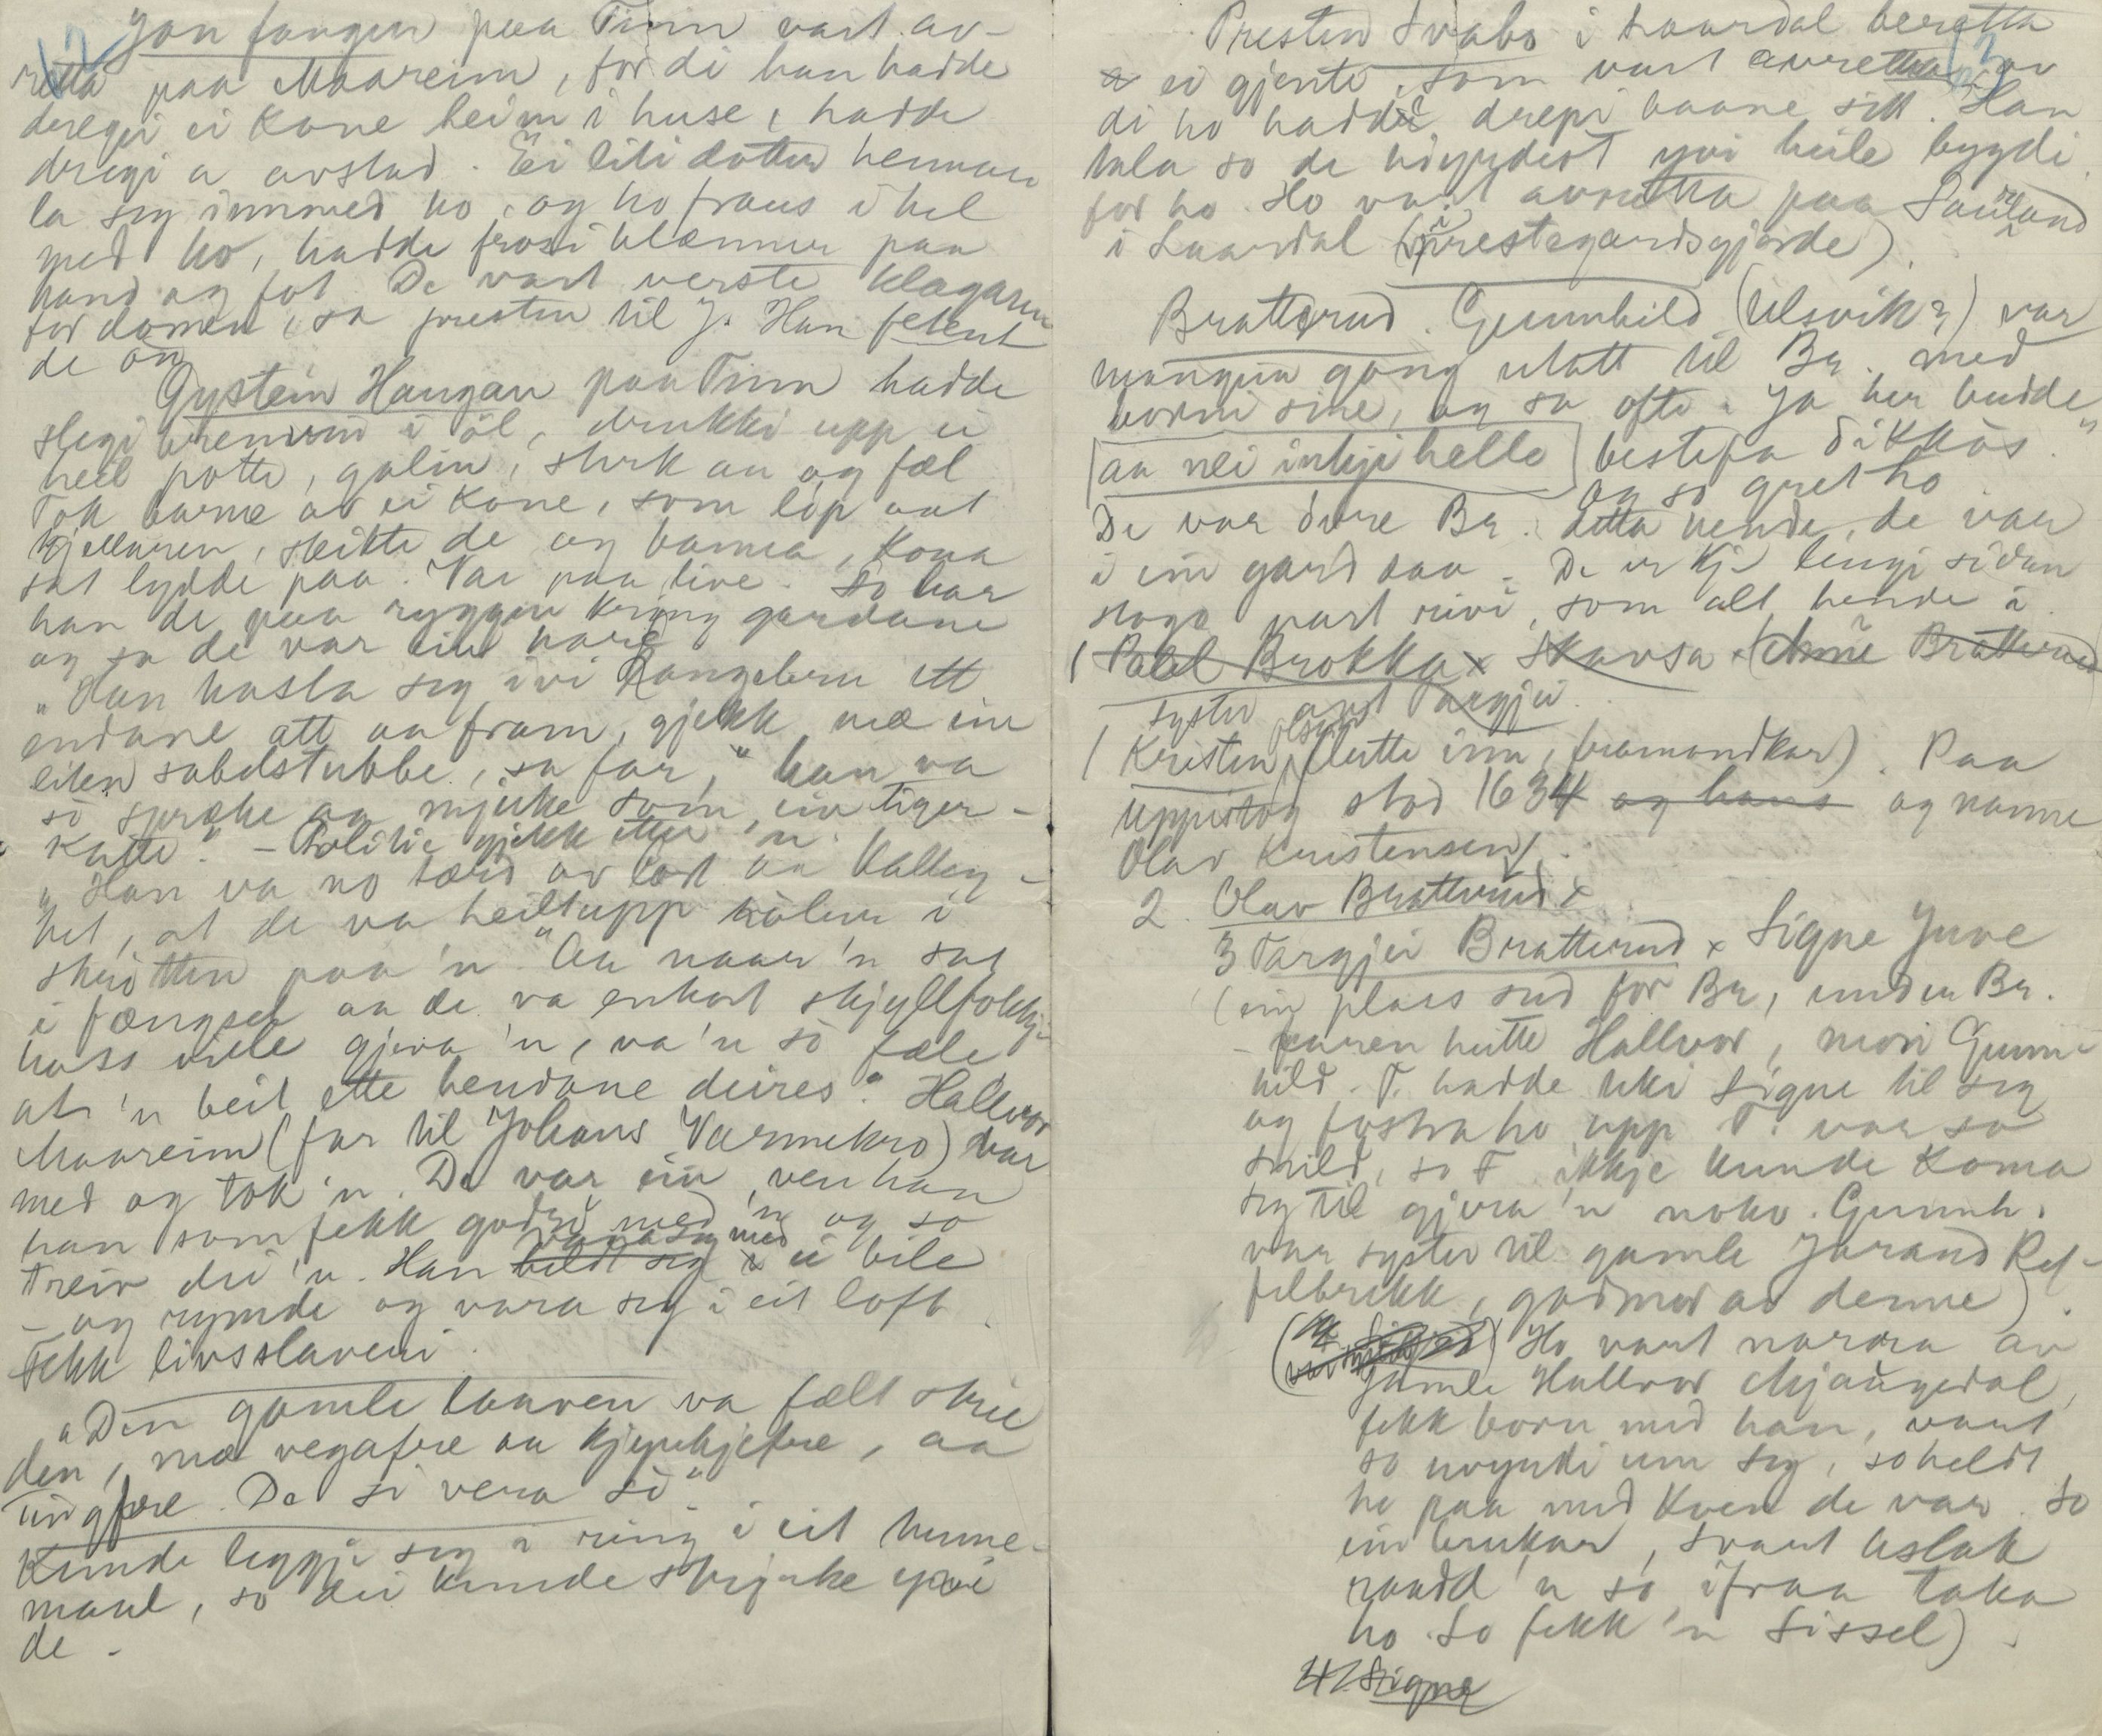 Jon fangen paa Tinn vart av-
retta paa Maareim, for di han hadde
dregi ei kone heim i huse, hadde
dregi a avstad. Ei liti dotter hennar
la seg innmed ho, og ho fraus i hel
med ho, hadde frosi blæmur paa
hand og fot. De vart verste klagaren
for domen, sa presten til J. Han fekk
de
Øystein Haugan paa Tinn hadde
slegi brennvin i öl, drukki upp ei
heil potte, galin, sterk aa og fæl
Tok barne av ei kone, som löp
kjellaren, sleitte de og barnea, kona
sat lydde paa. Var paa live. So bar
han de paa ryggen kring gardane
og sa de var ein hare
"Han kasta seg ivi Rangelven ett
endane att aa fram, gjekk mæ ein
liten sabelstubbe, sa far, "han va
so spræke og mjuke som ein tiger-
katte." - Politie gjekk etter 'n.
"Han va no særd av
het, at de va heilt upp kölen i
skrötten paa 'n. "Aa naar 'n sat
i fængsel aa de va enkort skjyllfolkji
hass ville gjeva 'n, va 'n so fæle
at 'n beit ette hendane deires." Hallvor
Maareim (far til Johans Varmekro) var
med og tok 'n. De var ein ven han
han som fekk godsi med 'n og so
treiv dei 'n. Han vara seg med ei bile
- og rymde og vara seg i eit loft.
Fekk livsslaveri.
"Den gamle laaven va fælt
den, mæ vegafere aa kjepekjefere, aa
ungfere. De si vera so"
Kunde leggje seg i ring i eit
maal, so dei kunde strjuke yvi
de -
Presten Svabo i Laardal beretta
ei gjente, som vart avretta av
di ho hadde drepi baane sitt. Han
tala so de yvi heile bygdi
for ho. Ho vart avretta paa Sauland
i Laardal (i prestegardsgjerde).
Bratterud. Gunnhild (Ulsvik?) var
mangein gong utatt til Br. med
borni sine, og sa ofte: Ja her budde
aa nei inkji helle bestefa dikkas."
og so gret ho
De var övre Br. detta hende, de var
i ein gard daa. De er kje lengi sidan
stoga vart rivi, som alt hende i
(Paal Brokka x Skavsa x Anne Bratterud
syster aat Targjei.
(Kristen Olsen flutte inn, framandkar). Paa
uppistog stod 1634 og hans og namne
Olav Kristensen).
2. Olav Bratterud x
3 Targjei Bratterud x Signe Juve
(ein plass sud for Br, under Br.
- faren heitte Hallvor, mori Gunn-
hild. T. hadde teki Signe til seg
og fostra ho upp. T. var so
snild, so F ikkje kunde koma
seg til gjera 'n noko. Gunnh.
var syster til gamle Jorand Ref-
filbrekk, godmor av denne).
Ho vart narra av
gamle Hallvor Mjaugedal,
fekk born med han, vart
so uvyrdi um seg, so heldt
ho paa med kven de var. So
ein brukar, svart Aslak
raadd 'n so ifraa taka
ho. So fekk 'n Sissel).
4/ Signe